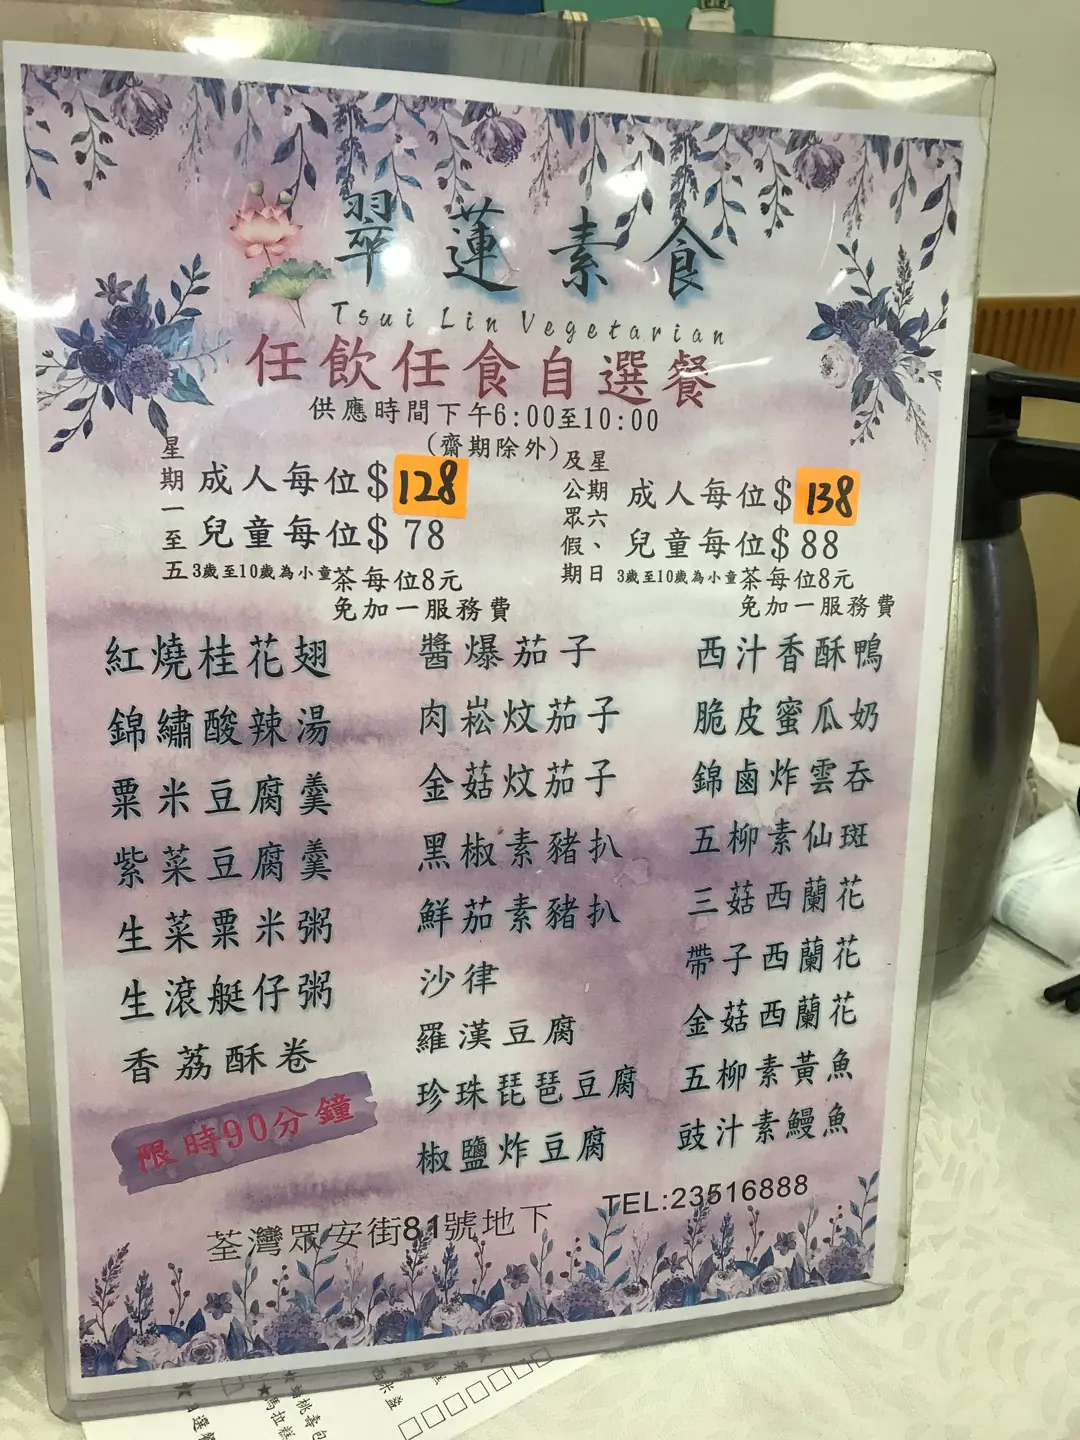 翠蓮素食
Tsui Lin Vegetarian
任飲任食自選餐
供應時間下午6:00至10:00
(齋期除外)
星期一至五
成人每位$128
兒童每位$78
3歲至10歲為小童茶每位8元
免加一服務費
星期六、日
及公眾假期
成人每位$138
兒童每位$88
3歲至10歲為小童茶每位8元
免加一服務費
紅燒桂花翅
錦繡酸辣湯
粟米豆腐羹
紫菜豆腐羹
生菜粟米粥
生滾艇仔粥
香荔酥卷
限時90分鐘
醬爆茄子
肉崧炆茄子
金菇炆茄子
黑椒素豬扒
鮮茄素豬扒
沙律
羅漢豆腐
珍珠琵琶豆腐
椒鹽炸豆腐
西汁香酥鴨
脆皮蜜瓜奶
錦鹵炸雲吞
五柳素仙斑
三菇西蘭花
帶子西蘭花
金菇西蘭花
五柳素黃魚
豉汁素鰻魚
荃灣眾安街81號地下
TEL:23516888